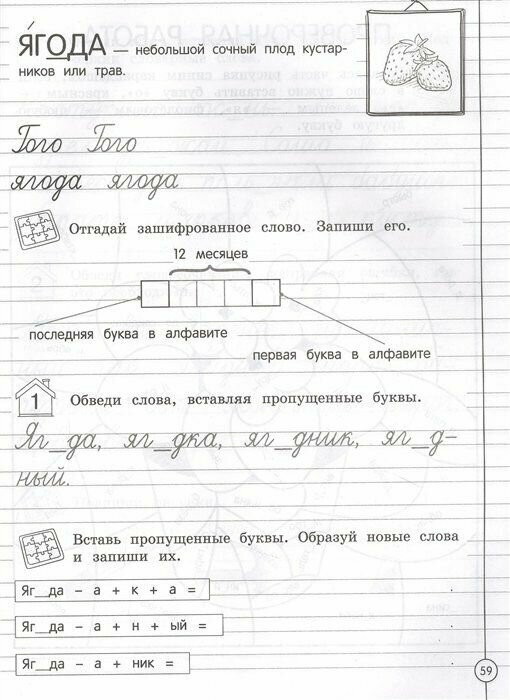 Я́ГОДА — небольшой сочный плод кустар-
ников или трав.
Гого Гого
ягода ягода
Отгадай зашифрованное слово. Запиши его.
12 месяцев
последняя буква в алфавите
первая буква в алфавите
1 Обведи слова, вставляя пропущенные буквы.
Яг_да, яг_дка, яг_дник, яг_д-
ный.
Вставь пропущенные буквы. Образуй новые слова
и запиши их.
Яг_да – а + к + а =
Яг_да – а + н + ый =
Яг_да – а + ник =
59